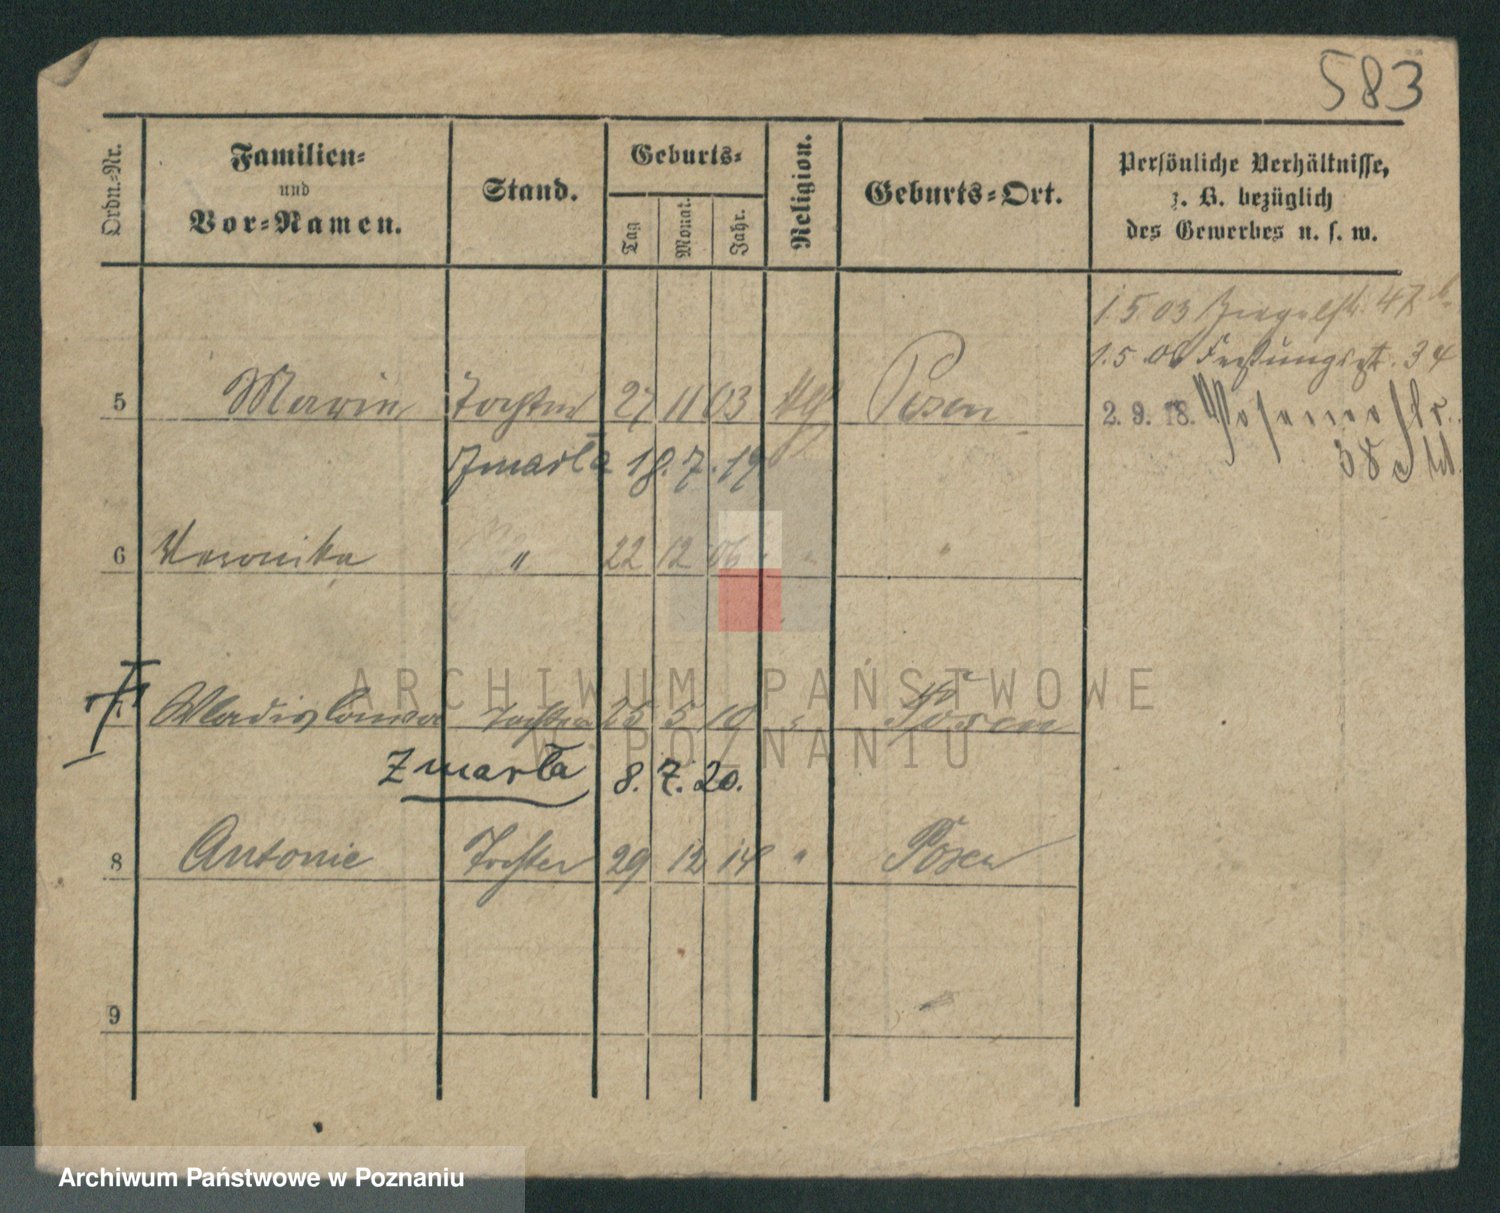 583
Ordn.-Nr.
Familien-
und
Vor-Namen.
Stand.
Geburts-
Tag
Monat.
Jahr.
Religion.
Geburts-Ort.
Persönliche Verhältnisse,
z. B. bezüglich
des Gewerbes u. s. w.
1.5 03 Ziegelstr. 47
1.5 06 Festungsstr. 34
5 Marie Tochter 27 11 03 Posen
2. 9. 18. Posener Str.
38
Zmarła 18. 7. 19
6 Veronika " 22 12 06 " "
Wladislawa Tochter 25 5 10 " Posen
Zmarła 8. 7. 20.
8 Antonie Tochter 29 12 14 " Posen
9
ARCHIWUM PAŃSTWOWE
W POZNANIU
Archiwum Państwowe w Poznaniu